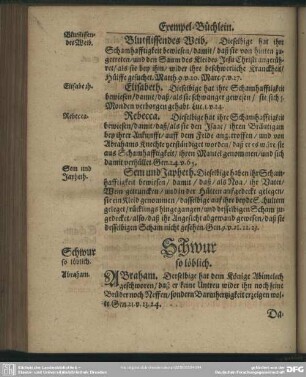 Exempel-Büchlein.
Blutfliessendes Weib.
Blutfliessendes Weib, Dieselbige hat ihre
Schamhafftigkeit bewiesen/ damit/ daß sie von hinten zu
getreten/ und den Saum des Kleides Jesu Christi angerüh-
ret/ als sie bey ihm/ wider ihre beschwerliche Kranckheit/
Hülffe gesuchet. Matth. 9. v. 20. Marc. 5. v. 27.
Elisabeth.
Elisabeth. Dieselbige hat ihre Schamhafftigkeit
bewiesen/ damit/ daß/ als sie schwanger gewesen/ sie sich 5.
Monden verborgen gehabt. Luc. 1. v. 24.
Rebecca.
Rebecca. Dieselbige hat ihre Schamhafftigkeit
bewiesen/ damit/ daß/ als sie den Isaac/ ihren Bräutigam
bey ihrer Ankunfft/ auff dem Felde angetroffen/ und von
Abrahams Knechte verständiget worden/ daß er es wäre sie
aus Schamhafftigkeit/ ihren Mantel genommen/ und sich
damit verhüllet. Gen. 24. v. 65.
Sem und Japheth.
Sem und Japheth. Dieselbige haben ihr Scham-
hafftigkeit bewiesen/ damit/ daß/ als Noa/ ihr Vater/
Wein getruncken/ und in der Hütten auffgedeckt gelegen/
sie ein Kleid genommen/ dasselbige auff ihre beyde Schultern
geleget/ rücklings hinzugegangen/ und desselbigen Scham zu-
gedecket/ also/ daß ihr Angesicht abgewand gewesen/ daß sie
desselbigen Scham nicht gesehen. Gen. 9. v. 21. 22. 23.
Schwur
so löblich.
Schwur
so löblich.
Abraham.
ABraham. Derselbige hat dem Könige Abimelech
geschworen/ daß er keine Untreu wider ihn noch seine
Kinder noch Neffen/ sondern Barmhertzigkeit erzeigen wol-
te. Gen. 21. v. 23. 24.
Da-